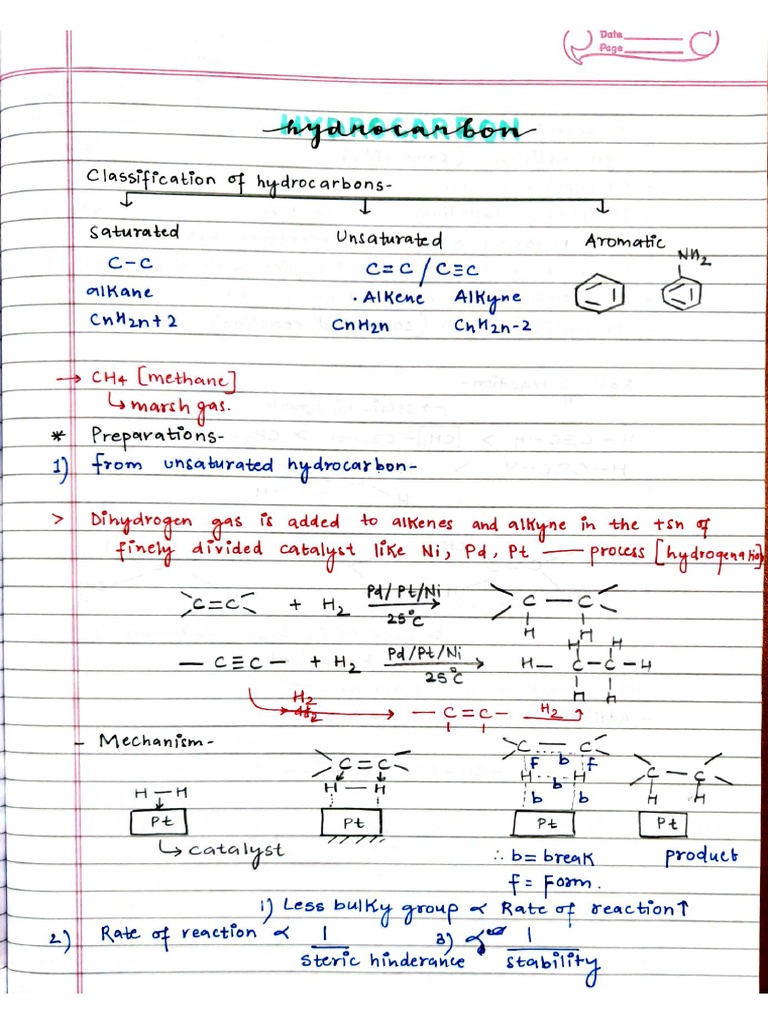 Date
Page
hydrocarbon
Classification of hydrocarbons-
Saturated Unsaturated Aromatic
C-C C=C / C≡C NH2
alkane . Alkene Alkyne
CnH2n+2 CnH2n CnH2n-2
→ CH4 [methane]
↳ marsh gas.
* Preparations-
1) from unsaturated hydrocarbon-
> Dihydrogen gas is added to alkenes and alkyne in the tsn of
finely divided catalyst like Ni, Pd, Pt — process [hydrogenation]
C=C + H2 Pd/Pt/Ni 25°C → C — C
H H
— C≡C — + H2 Pd/Pt/Ni 25°C → H — C — C — H
H H
H H
H2 → — C=C — H2 ↑
- Mechanism-
C=C C --- C
f b f
H — H H — H H --- H C — C
b
b b H H
Pt Pt Pt Pt
↳ catalyst ∴ b= break product
f= Form.
1) Less bulky group ∝ Rate of reaction↑
2) Rate of reaction ∝ 1 / steric hinderance 3) ∝ 1 / stability